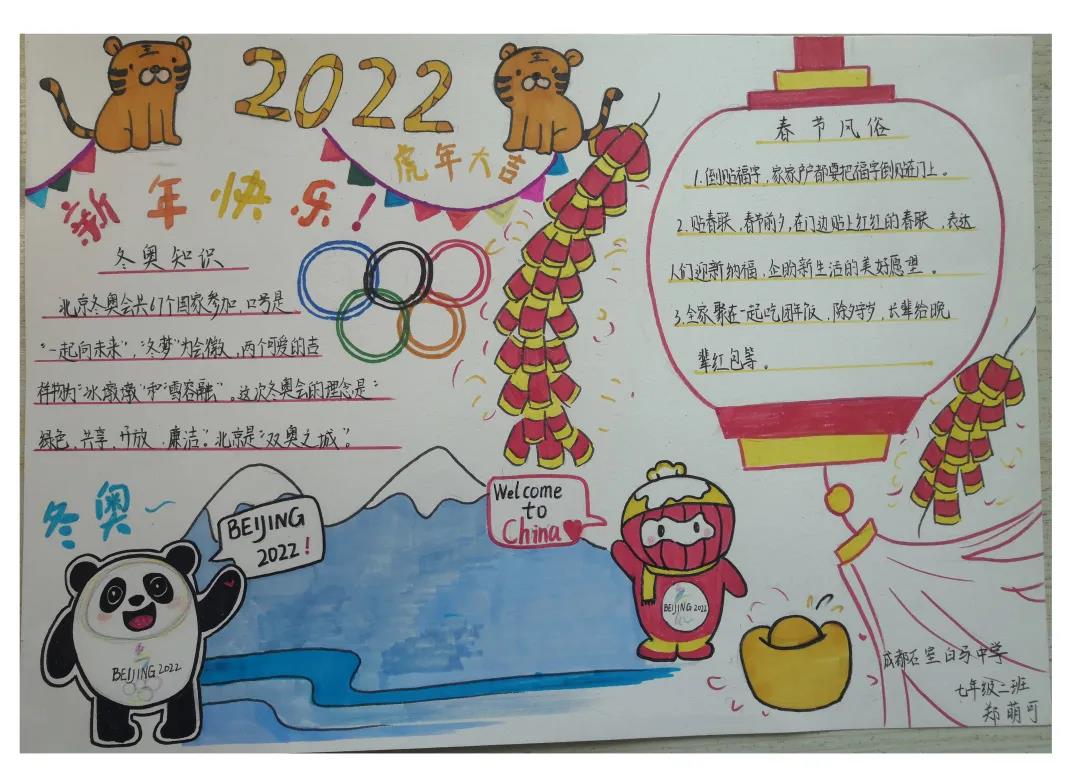 2022
虎年大吉
新年快乐!
冬奥知识
北京冬奥会共67个国家参加,口号是
"一起向未来","冬梦"为会徽,两个可爱的吉
祥物为"冰墩墩"和"雪容融"。这次冬奥会的理念是"
绿色、共享、开放、廉洁"。北京是"双奥之城"。
春节风俗
1.倒贴福字,家家户户都要把福字倒贴在门上。
2.贴春联,春节前夕,在门边贴上红红的春联,表达
人们迎新纳福,企盼新生活的美好愿望。
3.全家聚在一起吃团年饭,除夕守岁,长辈给晚
辈红包等。
冬奥
BEIJING
2022!
BEIJING 2022
Welcome
to
China
BEIJING 2022
成都石室白马中学
七年级二班
郑萌可